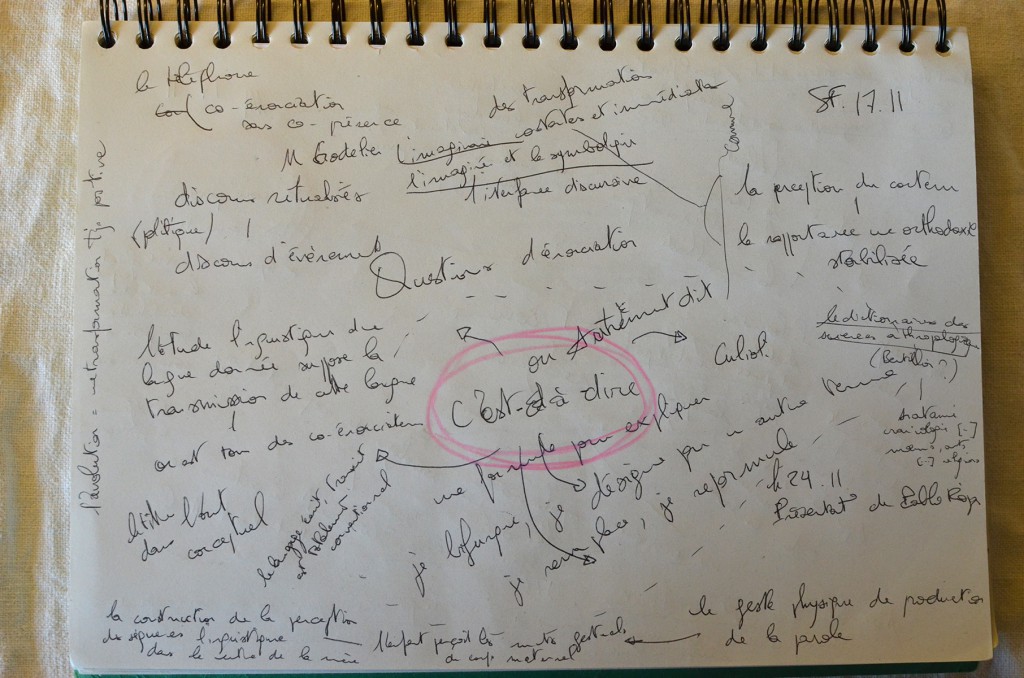 le téléphone
co-énonciation
sans co-présence
SF. 17.11
des transformations
constantes et immédiates
M Godelier L'imaginé
l'imaginé et le symbolique
l'interface discursive
discours ritualisés
(politique)
discours d'événement
Questions d'énonciation
la perception du contenu
le rapport avec une orthodoxie
stabilisée
l'évolution = métransformation tjs positive
ou Autrement dit
C'est-à-dire
Culioli
le dictionnaire des
sciences anthropologiques
(Bertillon ?)
L'étude linguistique d'une
langue donnée suppose la
transmission de cette langue
on est tous des co-énonciateurs
une formule pour expliquer
je bifurque, je désigne par un autre terme
je remplace, je reformule
le 24.11
Présentat° de Pablo
dans l'out
conceptuel
le langage écrit, transcrit
est totalement
conventionnel
anatomie
craniologie [-]
mœurs, arts,
[-] religions
le geste physique de production
de la parole
l'enfant perçoit les gestuels
du corps maternel
la construction de la perception
des séquences linguistiques
dans le ventre de la mère